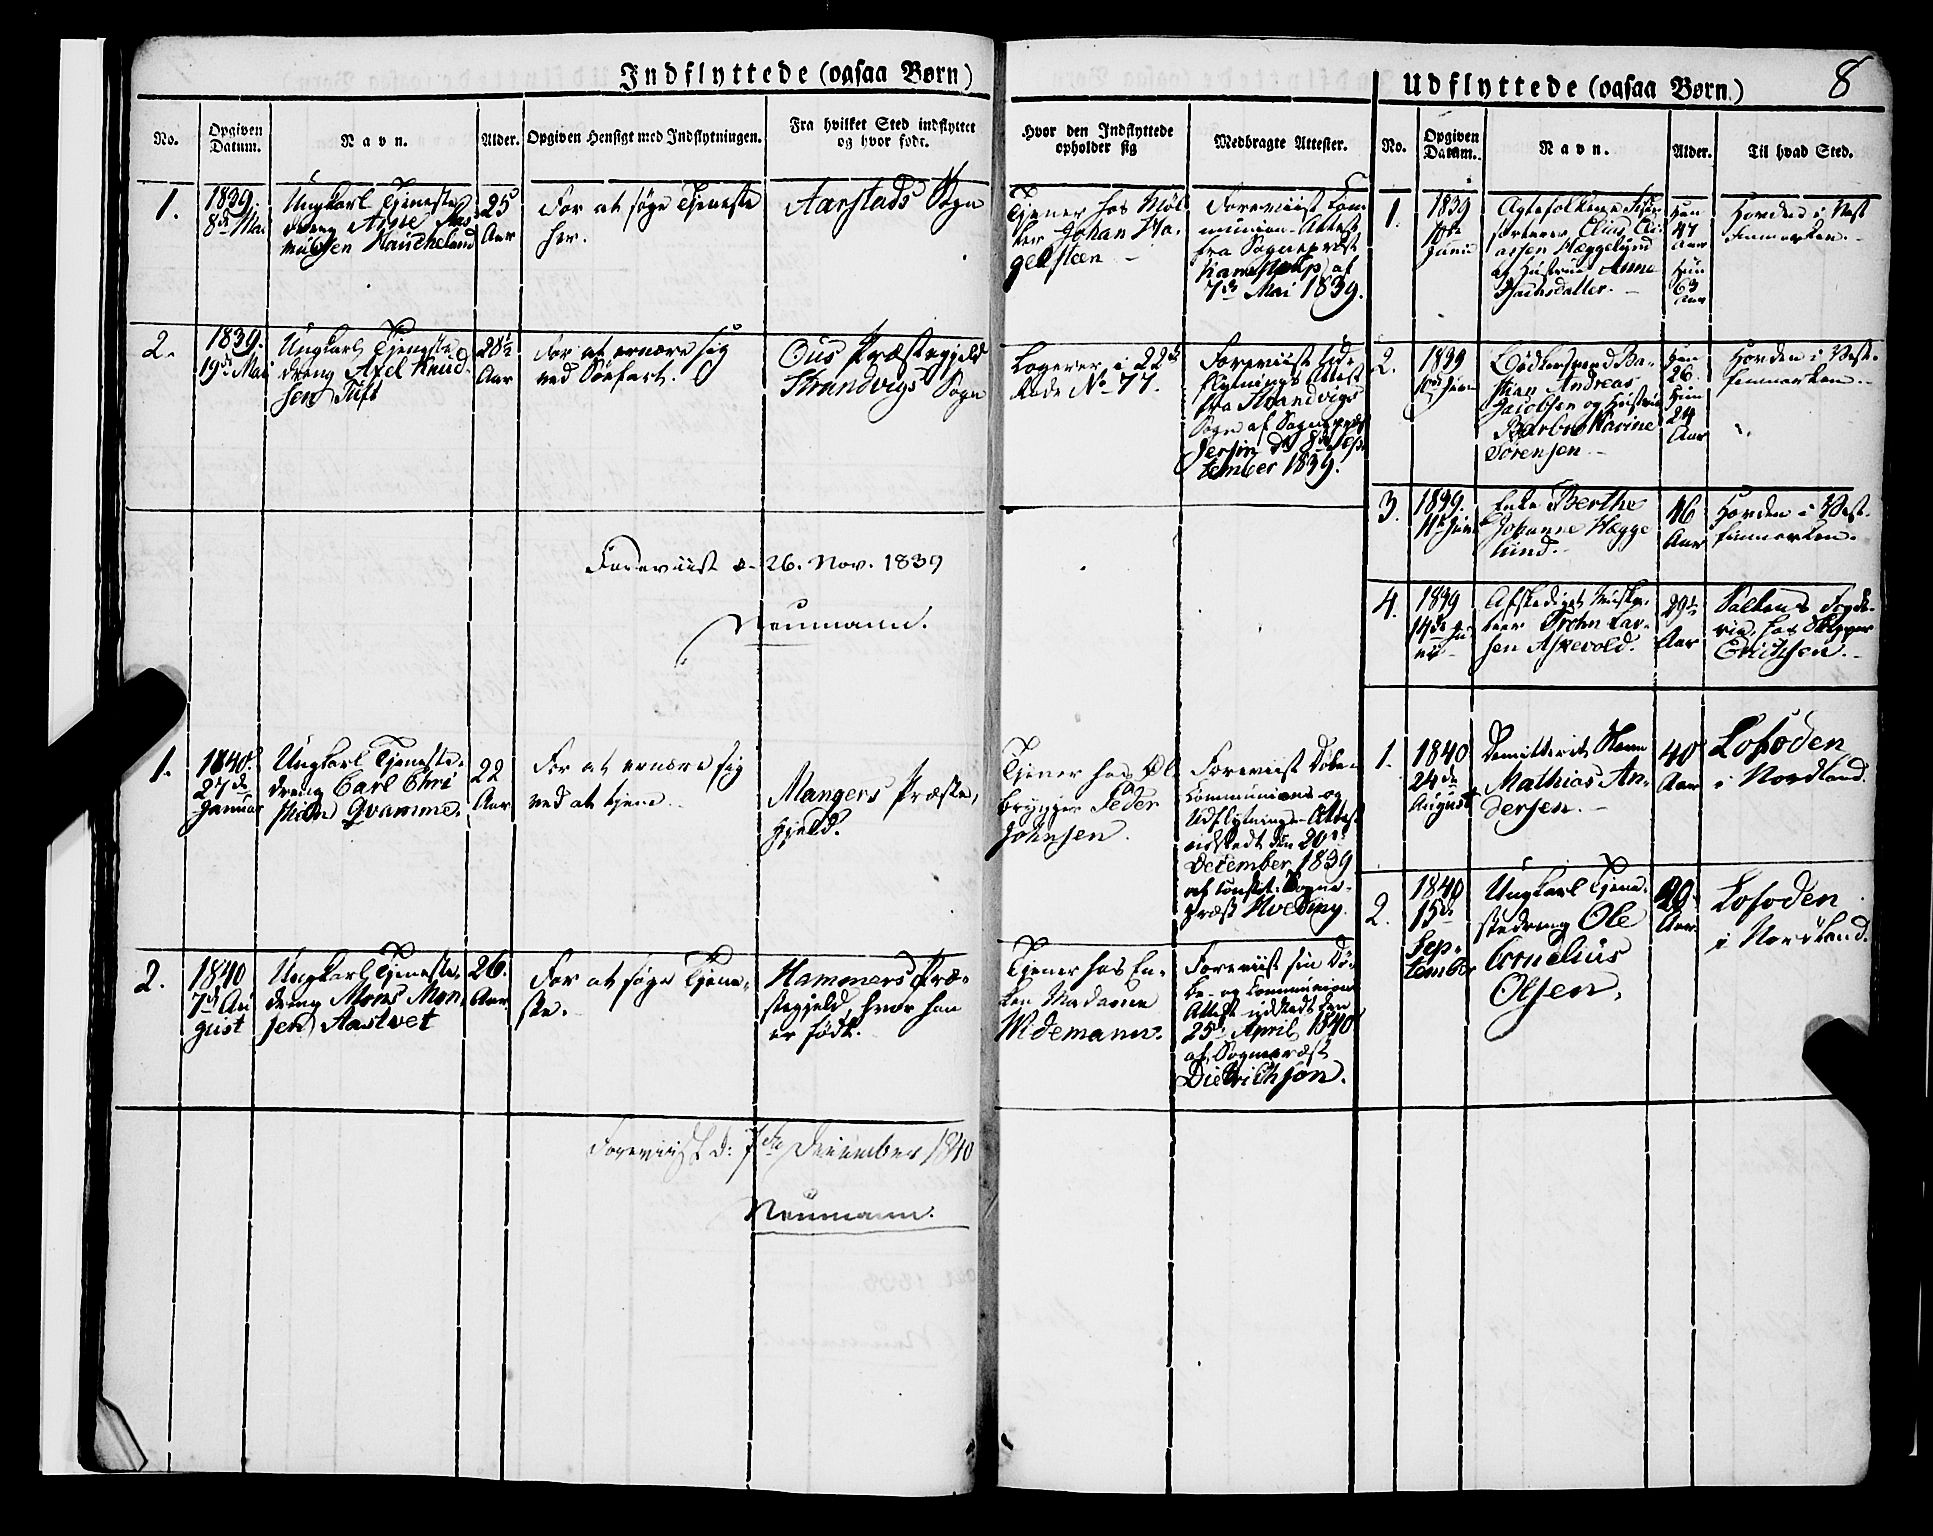 Indflyttede (ogsaa Børn)
No.
Opgiven Datum.
Navn.
Alder.
Opgiven Hensigt med Indflytningen.
Fra hvilket Sted indflyttet og hvor født.
Hvor den Indflyttede opholder sig
Medbragte Attester.
1.
1839.
8de Mai
Ungkarl Tjeneste
dreng Anne Ras
mussen
25
Aar
For at søge Tjeneste
her.
Aarstads Sogn
Tjener hos Møl
ler Johan Ha
gelsteen
Foreviist Com
munion-Attest
fra Sognepræst
af
7de Mai 1839.
2.
1839.
19de Mai
Ungkarl Tjeneste
dreng Axel Knud
sen Tuft
28½
Aar
For at ernære sig
ved Søefart.
Ous Præstegjeld
Strandvigs Sogn
Logerer i 22de
Rode No 77.
Foreviist Ud
flytnings Attest
fra Strandvigs
Sogn af Sognepræst
8de Sep
tember 1839.
Foreviist d. 26. Nov. 1839
Neumann.
1.
1840.
27de
Januar
Ungkarl Tjeneste
dreng Carl Chri
stian Qvamme.
22
Aar
For at ernære sig
ved at tjene.
Mangers Præste
gjeld.
Tjener hos Øl
brygger Peder
Johnsen.
Foreviist Døbe-
Communions og
Udflytnings-Attest
udstedt den 20de
December 1839
af const. Sogne
præst Hveding.
2.
1840
7de Au
gust
Ungkarl Tjeneste
dreng Mons Mon
sen Aastvet
26.
Aar
For at søge Tjene
ste.
Hammers Præ
stegjeld, hvor han
er født.
Tjener hos En
ken Madame
Widemann.
Foreviist sin Dø
be- og Communion
Attest udstedt den
25de April 1840
af Sognepræst
Dietrichson.
Foreviist d: 7de December 1840
Neumann.
8
Udflyttede (ogsaa Børn.)
No.
Opgiven Datum.
Navn.
Alder.
Til hvad Sted.
1.
1839
10de
Junii
Ægtefolkene
Elias Eli
assen Hæggelund
og Hustrue Anne
Han
47
Aar
Hun
63
Aar
Horden i Vest
Finmarken.
2.
1839
10de Juni
Ba
stian Andreas
Jacobsen og Hustrue
Barbra Karine
Sørensen
Han
26.
Hun
24
Aar
Horden i Vest-
finmarken.
3.
1839.
11te Juni
Enke Berthe
Johanne Hægge
lund.
46
Aar
Horden i Vest-
finmarken.
4.
1839
14de Ju
ni
Afskediget Muske
teer Trohn Lar
sen Askevold.
29½
Aar
Saltens Fogde-
rie, hos Skipper
Erichsen.
1.
1840
24de
August
Demitteret
Mathias An
dersen.
40
Aar
Lofoden
i Nordland.
2.
1840
15de
Sep-
tember
Ungkarl Tjene
stedreng Ole
Cornelius
Olsen.
29.
Aar
Lofoden
i Nordland.